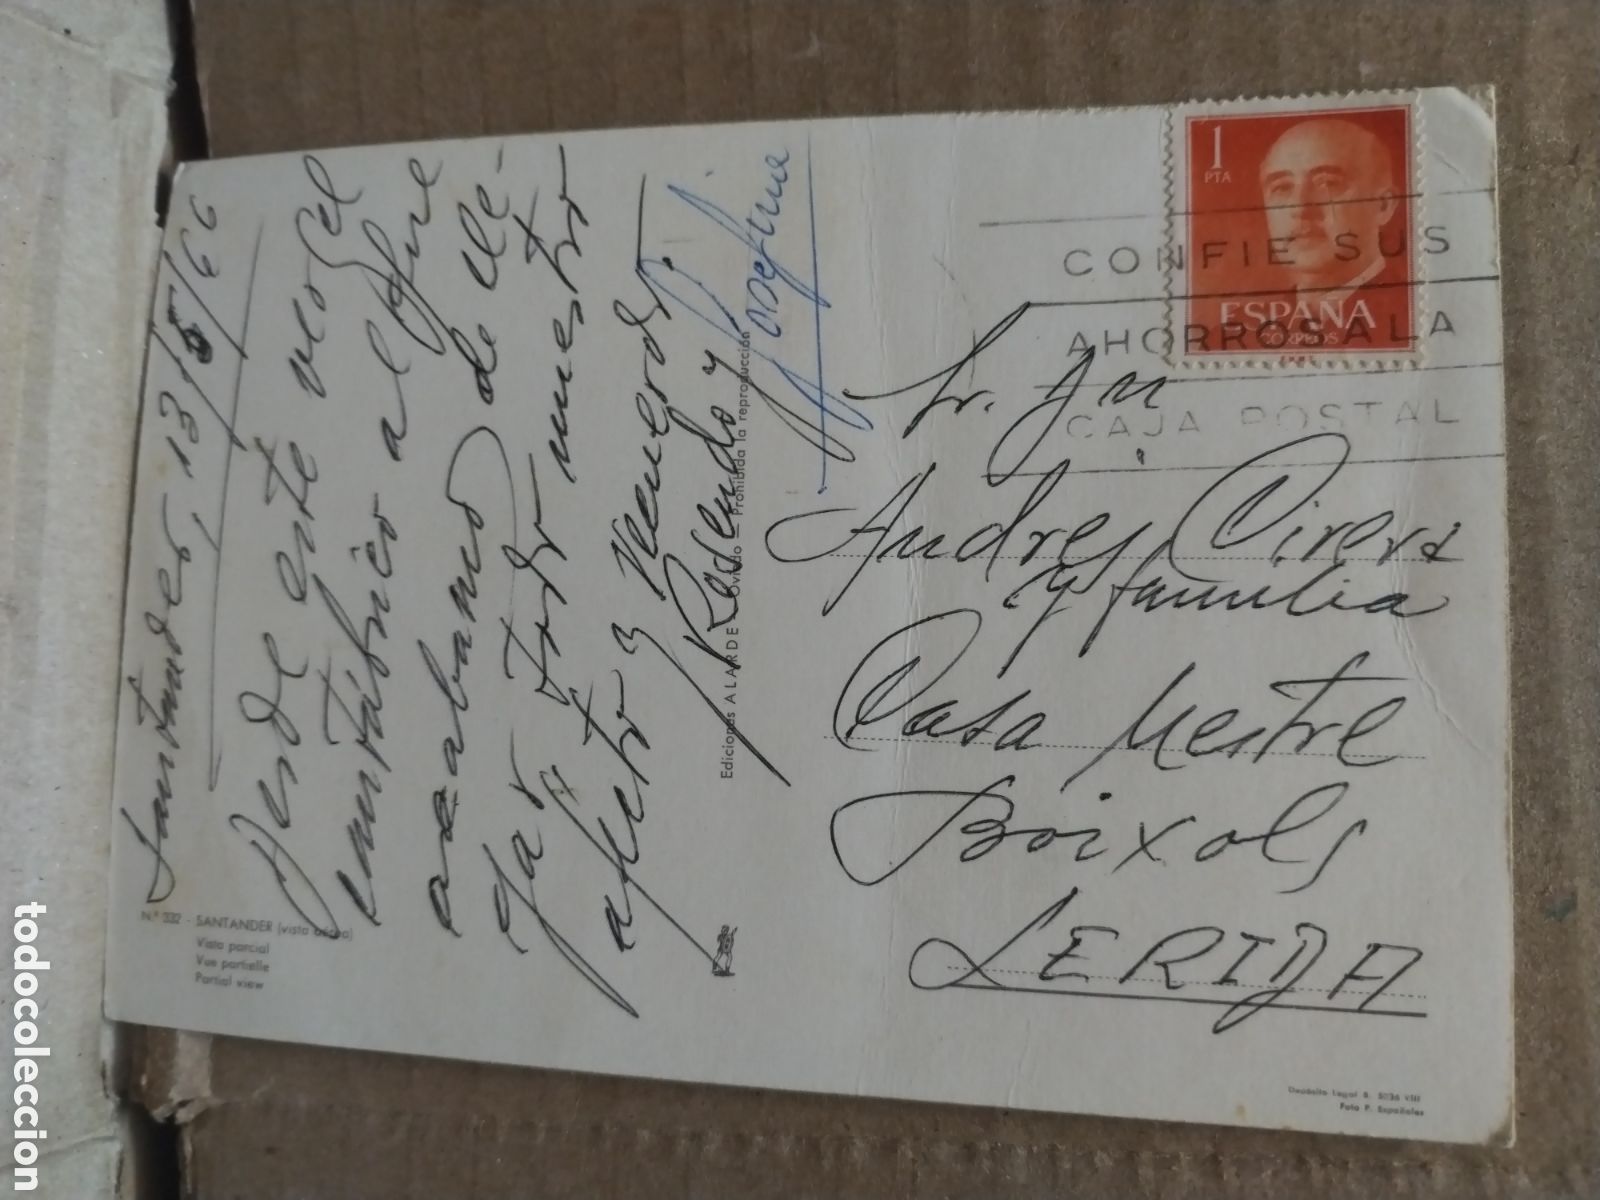 Santander, 13/5/66
Desde este vergel
cantábrico al que
acabamos de lle-
gar todo nuestro
afecto y recuerdo
Rosendo y
Josefina
Nº 332 - SANTANDER (vista aérea)
Vista parcial
Vue partielle
Partial view
Ediciones ALARDE - Oviedo - Prohibida la reproducción
1
PTA
ESPAÑA
CORREOS
CONFIE SUS
AHORROS A LA
CAJA POSTAL
Sr. Dn
Andres Cirera
y familia
Casa Mestre
Boixols
LERIDA
Depósito Legal B. 5036 VIII
Foto P. Españoles
todocoleccion